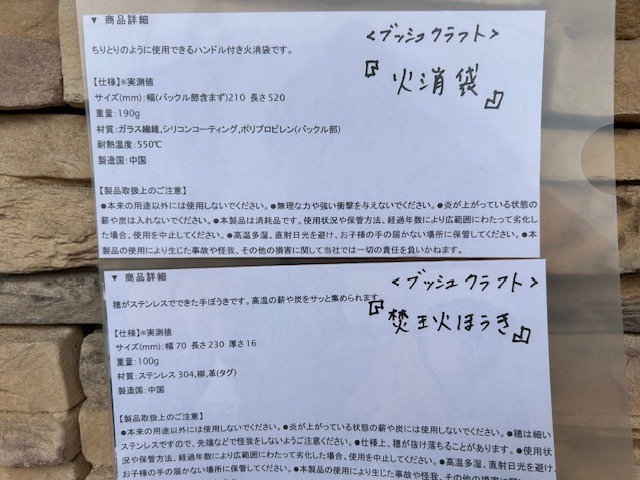 ▼ 商品詳細
<ブッシュクラフト>
『火消袋』
ちりとりのように使用できるハンドル付き火消袋です。
【仕様】※実測値
サイズ(mm):幅(バックル部含まず)210 長さ520
重量:190g
材質:ガラス繊維,シリコンコーティング,ポリプロピレン(バックル部)
耐熱温度:550℃
製造国:中国
【製品取扱上のご注意】
●本来の用途以外には使用しないでください。●無理な力や強い衝撃を与えないでください。●炎が上がっている状態の
薪や炭は入れないでください。●本製品は消耗品です。使用状況や保管方法、経過年数により広範囲にわたって劣化し
た場合、使用を中止してください。●高温多湿、直射日光を避け、お子様の手の届かない場所に保管してください。●本
製品の使用により生じた事故や怪我、その他の損害に関して当社では一切の責任を負いかねます。
▼ 商品詳細
<ブッシュクラフト>
『焚火ほうき』
穂がステンレスでできた手ぼうきです。高温の薪や炭をサッと集められます
【仕様】※実測値
サイズ(mm):幅70 長さ230 厚さ16
重量:100g
材質:ステンレス304,柳,革(タグ)
製造国:中国
【製品取扱上のご注意】
●本来の用途以外には使用しないでください。●炎が上がっている状態の薪や炭には使用しないでください。●穂は細い
ステンレスですので、先端などで怪我をしないようご注意ください。●仕様上、穂が抜け落ちることがあります。●使用状
況や保管方法、経過年数により広範囲にわたって劣化した場合、使用を中止してください。●高温多湿、直射日光を避け、
お子様の手の届かない場所に保管してください。●本製品の使用により生じた事故や怪我、その他の損害に関し